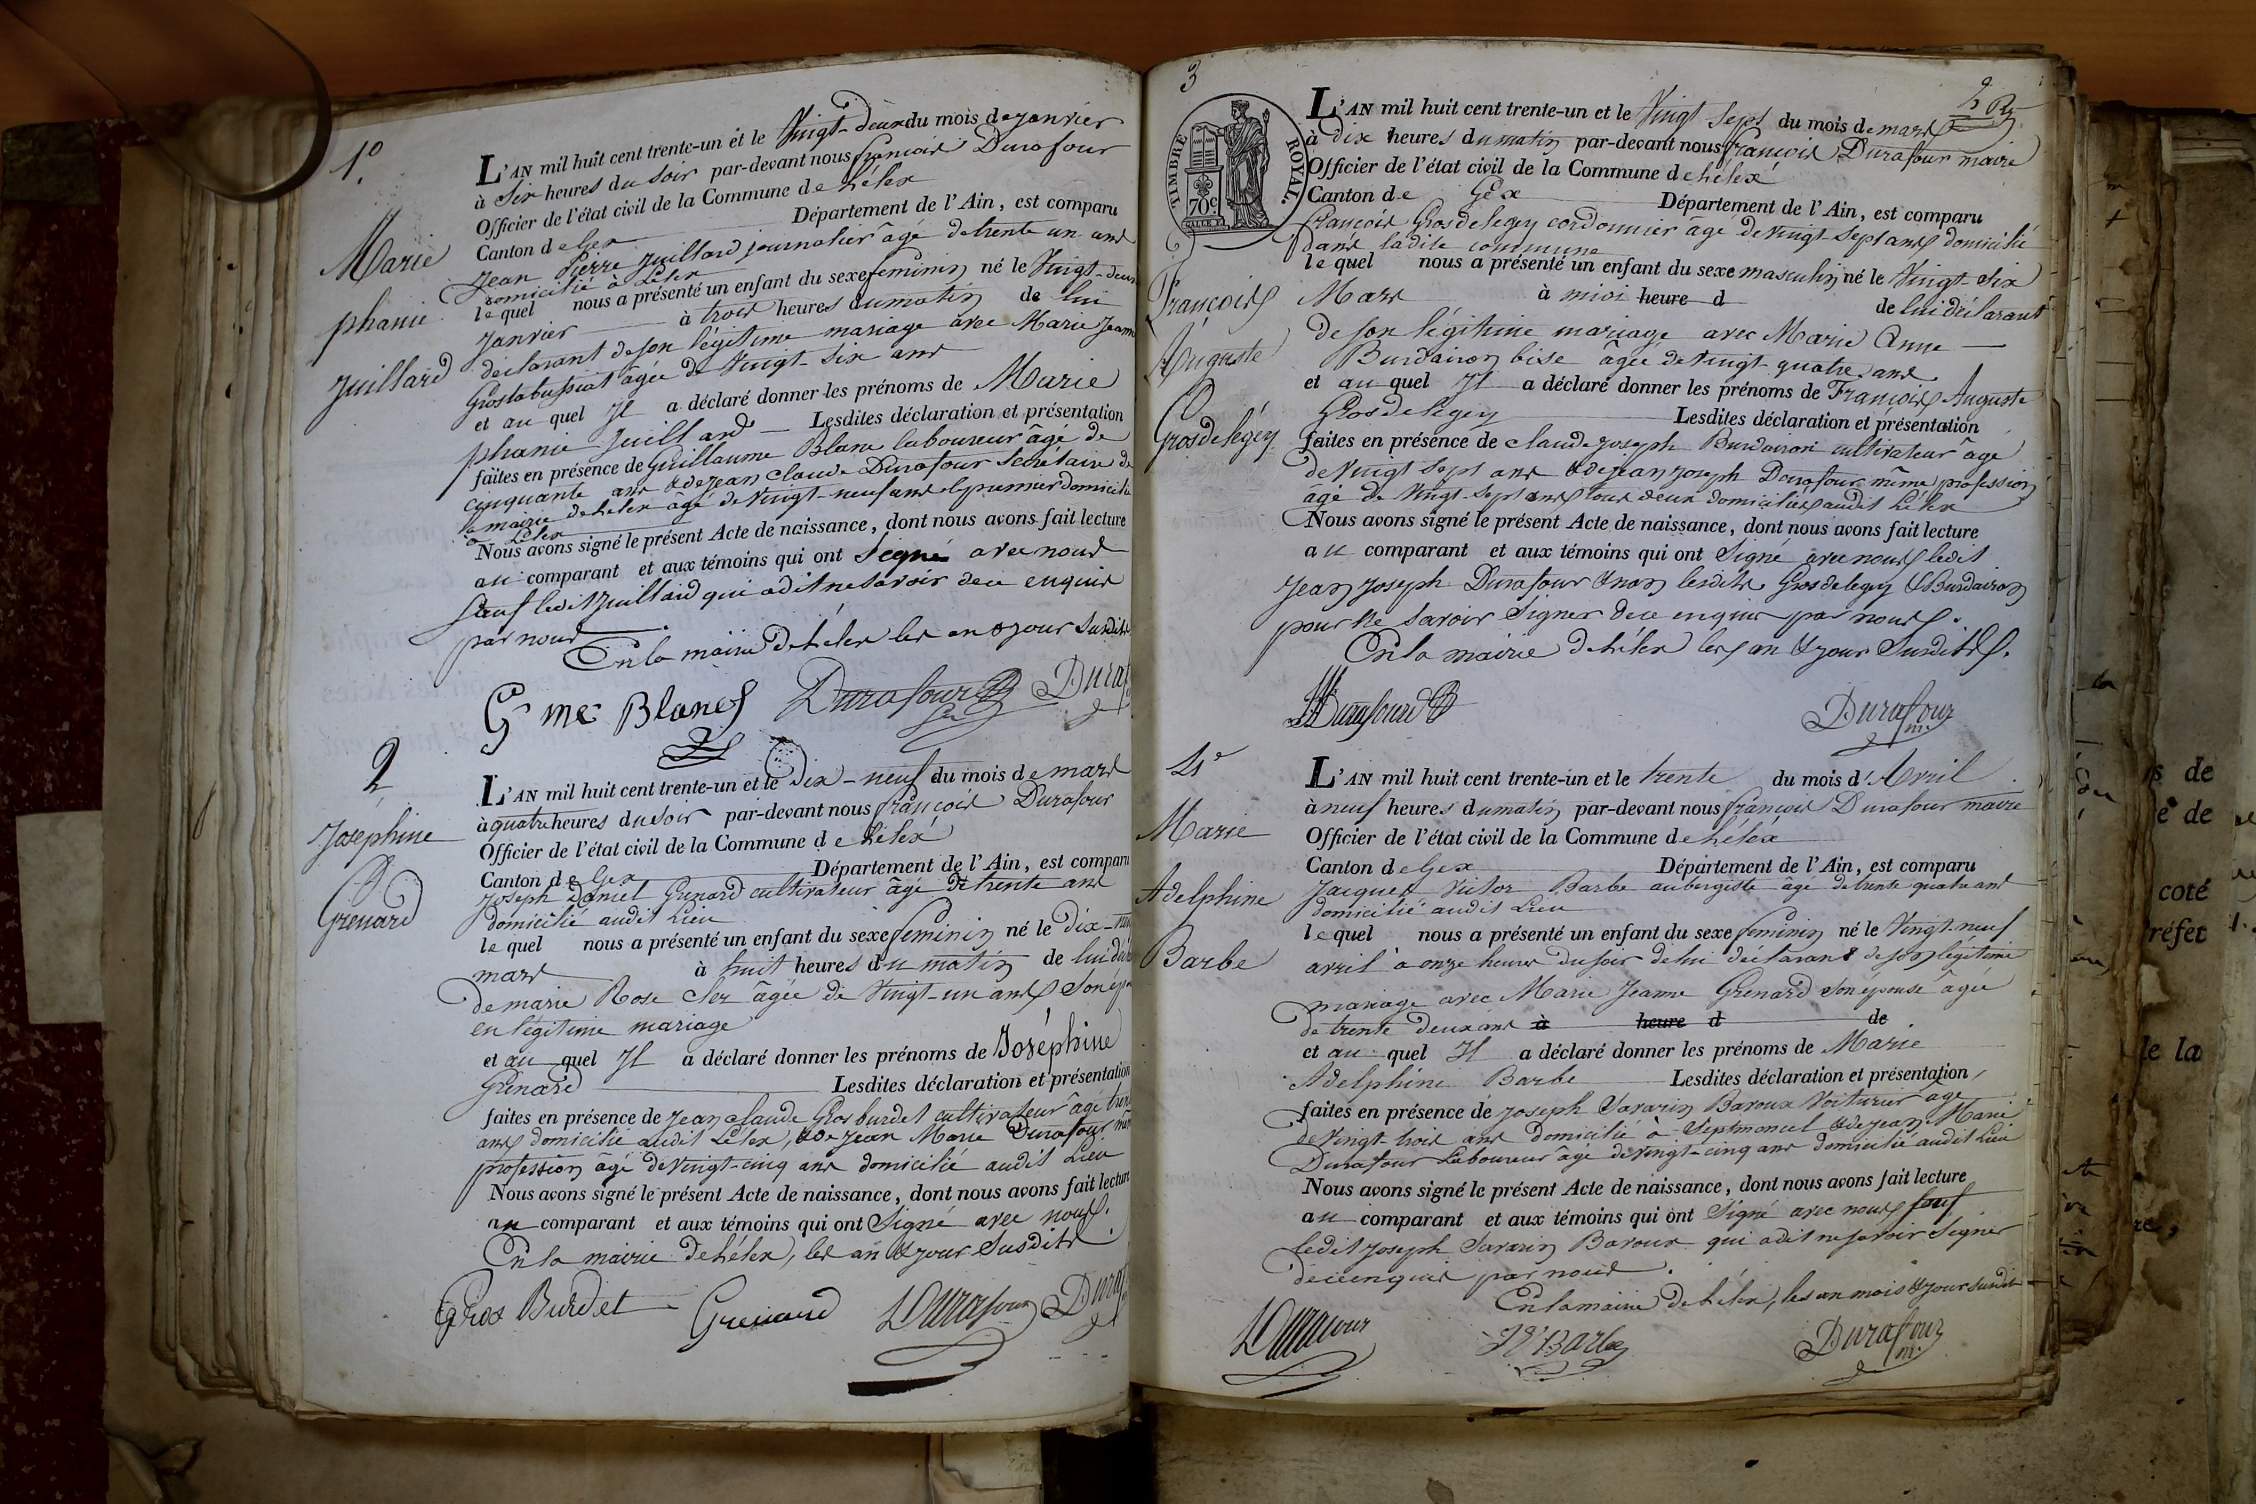 1.o
Marie
phanie
Juillard
L'AN mil huit cent trente-un et le Vingt-deux du mois de janvier
à Six heures du soir par-devant nous françois Durafour
Officier de l'état civil de la Commune de Lélex
Canton de Gex Département de l'Ain, est comparu
Jean Pierre Juillard journalier âgé de trente un ans
domicilié à Lélex
lequel nous a présenté un enfant du sexe feminin né le Vingt-deux
Janvier à trois heures du matin de lui
déclarant de son légitime mariage avec Marie Jeanne
âgée de Vingt-six ans
et au quel Il a déclaré donner les prénoms de Marie
phanie Juillard Lesdites déclaration et présentation
faites en présence de Guillaume Blanc laboureur âgé de
cinquante ans & de Jean Claude Durafour Secrétaire de
la mairie de Lélex âgé de Vingt-neuf ans le premier domicilié
à Lélex
Nous avons signé le présent Acte de naissance, dont nous avons fait lecture
au comparant et aux témoins qui ont Signé avec nous
Sauf ledit Juillard qui a dit ne savoir de ce enquis
par nous
En la mairie de Lélex les an & jour Susdits
Gme Blanc Durafour
2
Joséphine
Grenard
L'AN mil huit cent trente-un et le Dix-neuf du mois de mars
à quatre heures du soir par-devant nous françois Durafour
Officier de l'état civil de la Commune de Lélex
Canton de Gex Département de l'Ain, est comparu
Joseph Daniel Grenard cultivateur âgé de trente ans
domicilié audit Lieu
lequel nous a présenté un enfant du sexe feminin né le Dix-neuf
mars à huit heures du matin de lui
de marie Rose âgée de Vingt-un ans Son
en légitime mariage
et au quel Il a déclaré donner les prénoms de Joséphine
Grenard Lesdites déclaration et présentation
faites en présence de Jean Claude Gros burdet cultivateur âgé
ans domicilié audit Lélex, & de Jean Marie Durafour
profession âgé de Vingt-cinq ans domicilié audit Lieu
Nous avons signé le présent Acte de naissance, dont nous avons fait lecture
au comparant et aux témoins qui ont Signé avec nous.
En la mairie de Lélex, les an & jour Susdits
Gros Burdet Grenard Durafour
3
2
TIMBRE ROYAL
70c
François
Auguste
Grosdelégey
L'AN mil huit cent trente-un et le Vingt Sept du mois de mars
à dix heures du matin par-devant nous françois Durafour maire
Officier de l'état civil de la Commune de Lélex
Canton de Gex Département de l'Ain, est comparu
françois Grosdelegey cordonnier âgé de Vingt-Sept ans domicilié
dans ladite commune
lequel nous a présenté un enfant du sexe masculin né le Vingt-Six
Mars à midi heure d de lui déclarant
de son légitime mariage avec Marie Anne
Burdairon bise âgée de Vingt-quatre ans
et au quel Il a déclaré donner les prénoms de François Auguste
Grosdelegey Lesdites déclaration et présentation
faites en présence de claude joseph Burdairon cultivateur âgé
de Vingt Sept ans & de Jean Joseph Durafour même profession
âgé de Vingt-Sept ans tous deux domiciliés audit Lélex
Nous avons signé le présent Acte de naissance, dont nous avons fait lecture
au comparant et aux témoins qui ont Signé avec nous ledit
Jean Joseph Durafour & non lesdits Grosdelegey & Burdairon
pour ne savoir Signer de ce enquis par nous.
En la mairie de Lélex les an & jour Susdits.
Durafour
4
Marie
Adelphine
Barbe
L'AN mil huit cent trente-un et le trente du mois d'Avril
à neuf heures du matin par-devant nous françois Durafour maire
Officier de l'état civil de la Commune de Lélex
Canton de Gex Département de l'Ain, est comparu
Jacques Victor Barbe aubergiste âgé de trente quatre ans
domicilié audit Lieu
lequel nous a présenté un enfant du sexe feminin né le Vingt-neuf
avril à onze heures du soir de lui déclarant de son légitime
mariage avec Marie Jeanne Grenard Son épouse âgée
de trente deux ans à heure d de
et au quel Il a déclaré donner les prénoms de Marie
Adelphine Barbe Lesdites déclaration et présentation
faites en présence de Joseph Savarin Baroux Voiturier âgé
de Vingt trois ans domicilié à Septmoncel & de Jean Marie
Durafour Laboureur âgé de vingt-cinq ans domicilié audit Lieu
Nous avons signé le présent Acte de naissance, dont nous avons fait lecture
au comparant et aux témoins qui ont Signé avec nous sauf
ledit Joseph Savarin Baroux qui a dit ne savoir Signer
de ce enquis par nous.
En la mairie de Lélex, les an mois & jour susdit
Durafour Barbe Durafour m.
de
coté
de la